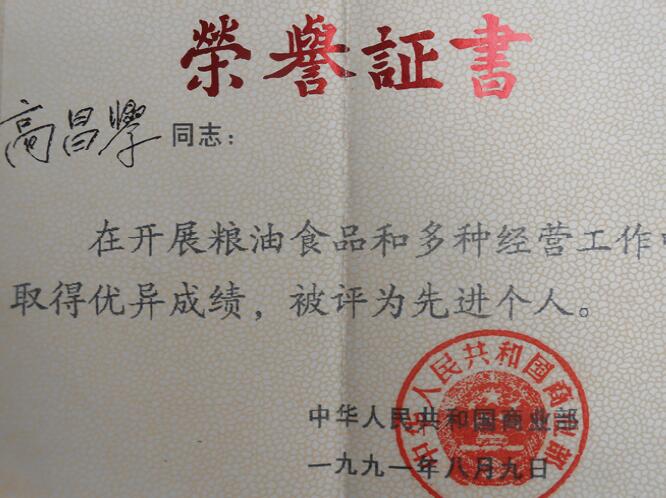 榮譽証書
高昌學同志：
在开展粮油食品和多种经营工作中
取得优异成绩，被评为先进个人。
中华人民共和国商业部
中华人民共和国商业部
一九九一年八月九日